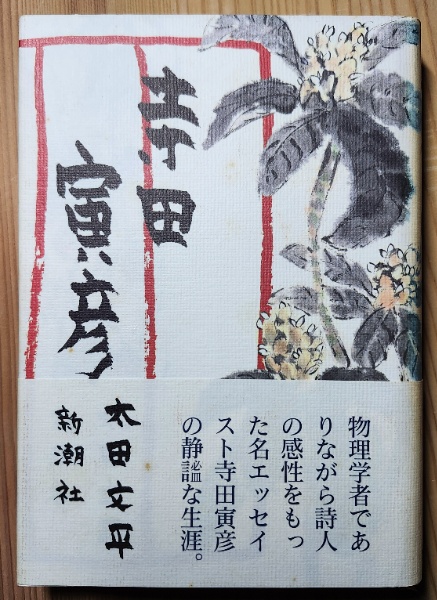 寺田
寅彦
太田文平
新潮社
物理学者であ
りながら詩人
の感性をもっ
た名エッセイ
スト寺田寅彦
の静謐な生涯。